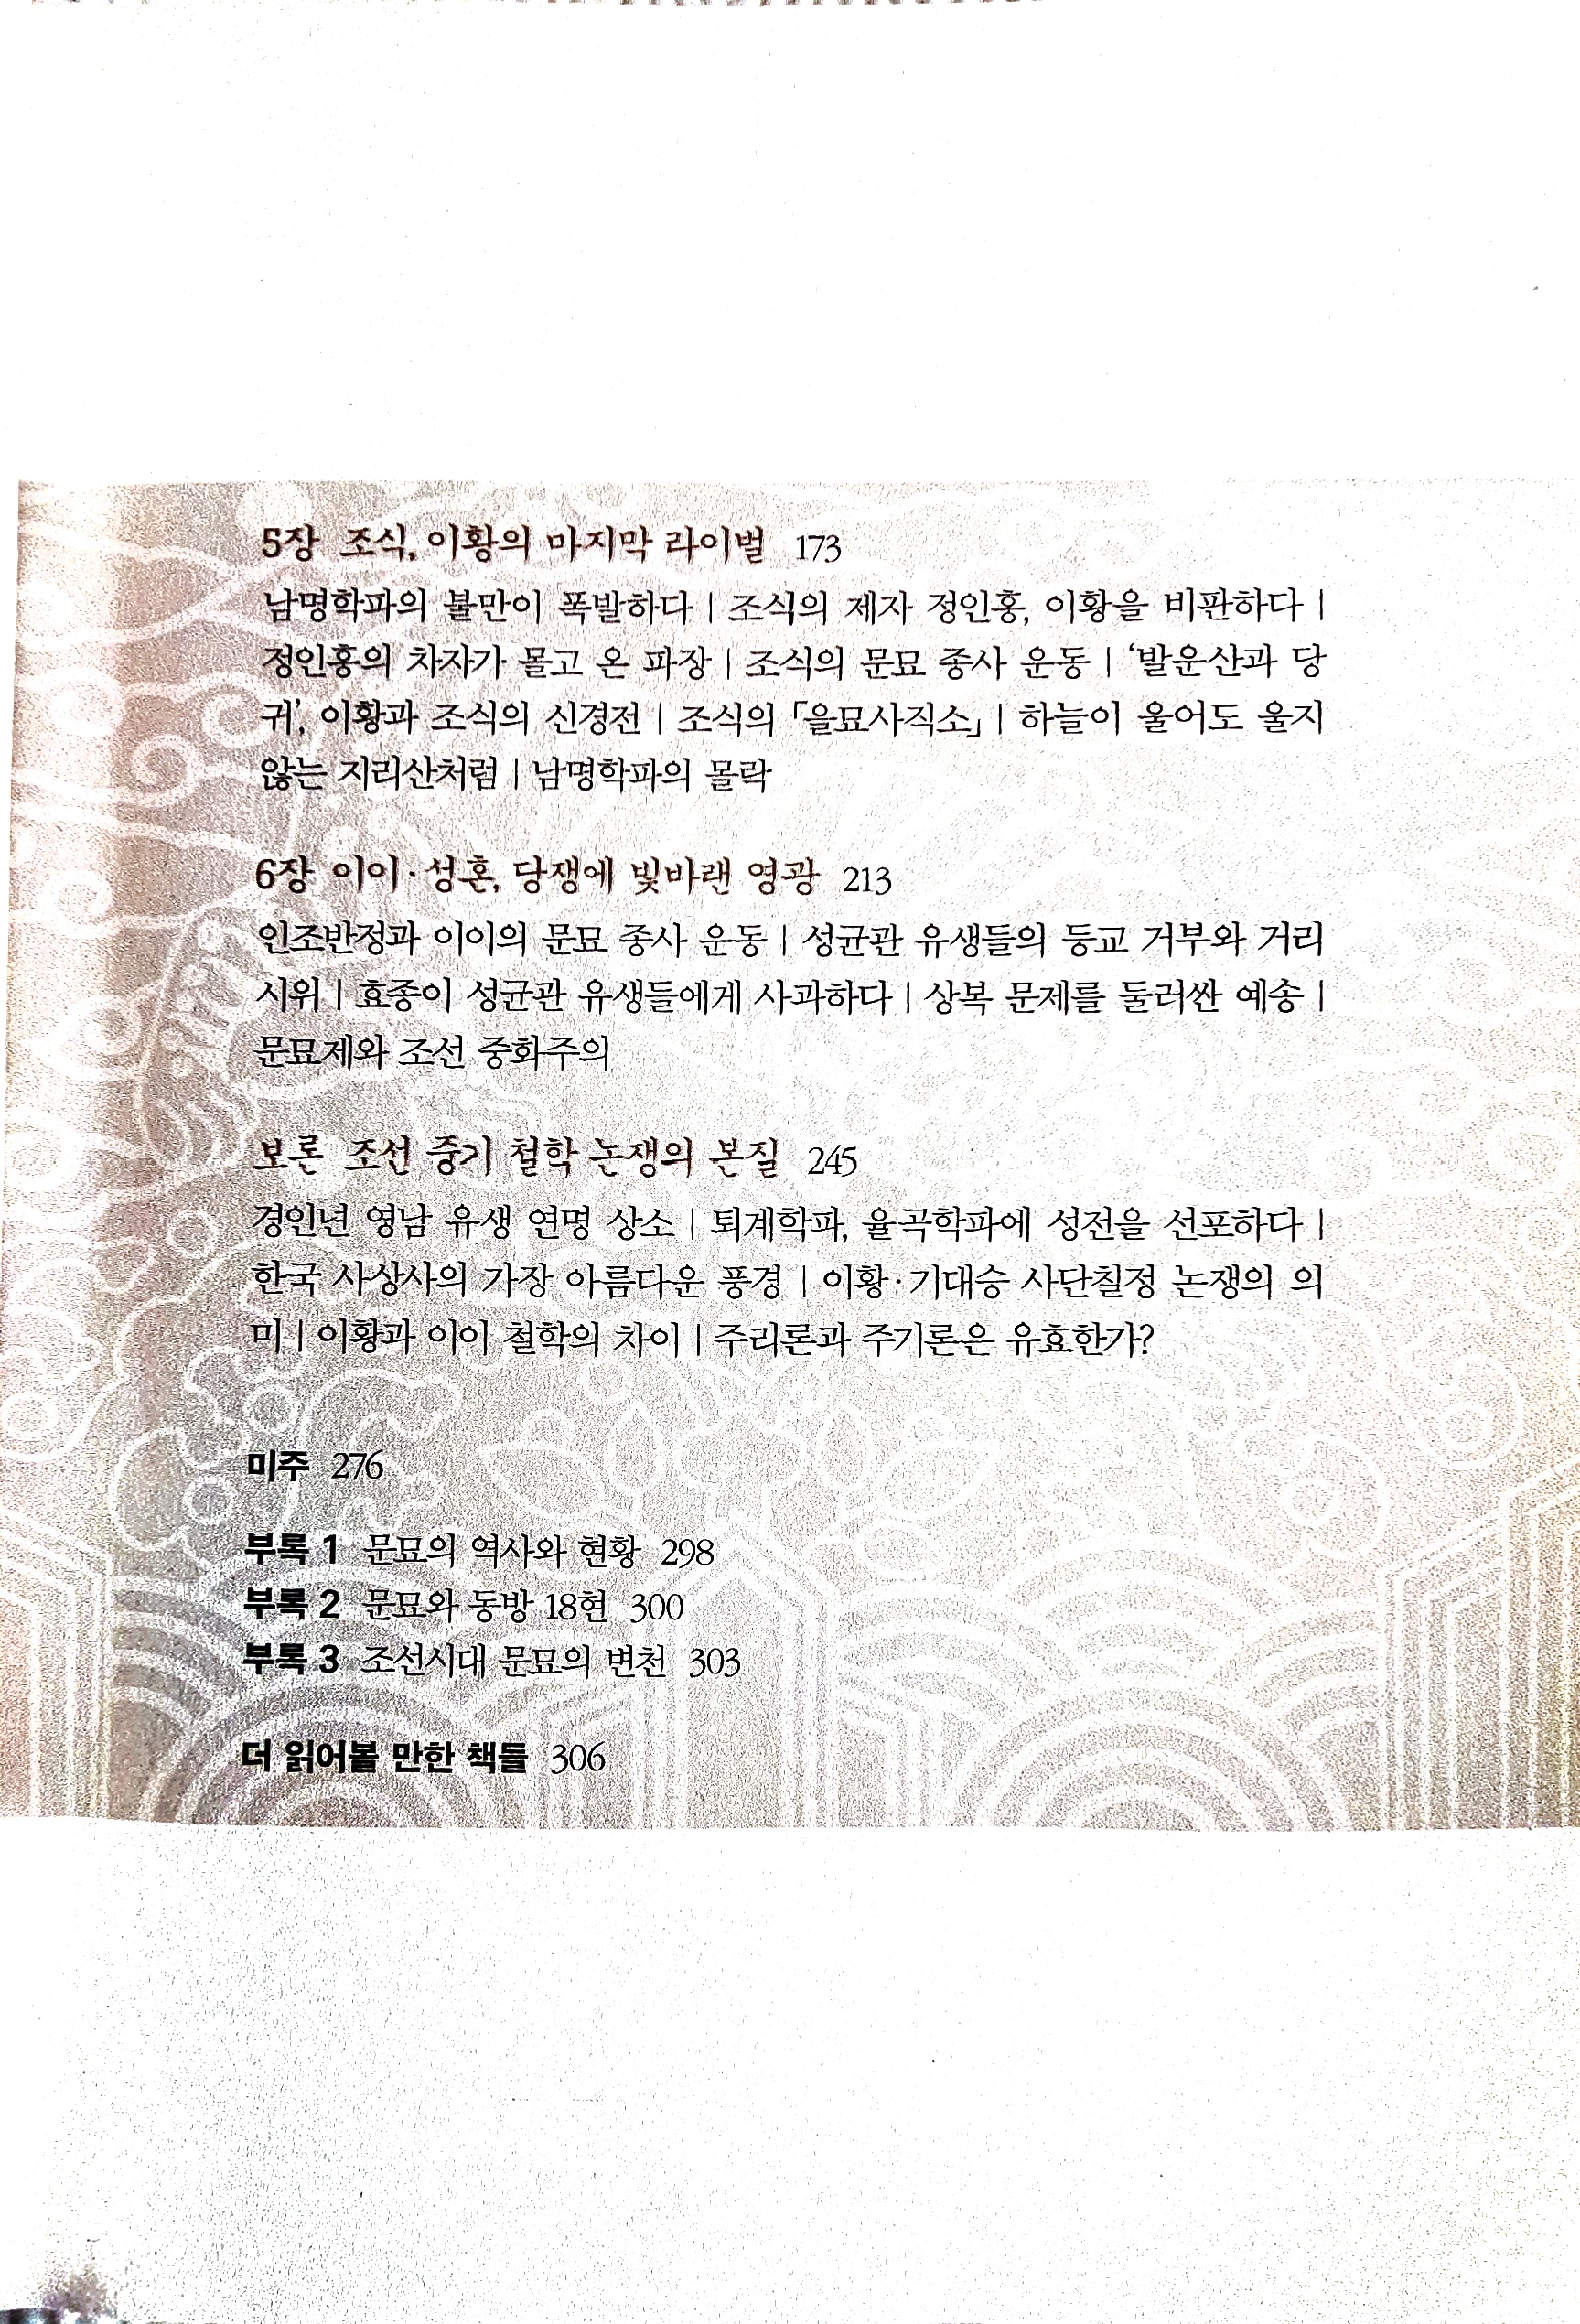 5장 조식, 이황의 마지막 라이벌 173
남명학파의 불만이 폭발하다 | 조식의 제자 정인홍, 이황을 비판하다 |
정인홍의 차자가 몰고 온 파장 | 조식의 문묘 종사 운동 | ‘발운산과 당
귀’, 이황과 조식의 신경전 | 조식의 「을묘사직소」 | 하늘이 울어도 울지
않는 지리산처럼 | 남명학파의 몰락
6장 이이·성혼, 당쟁에 빛바랜 영광 213
인조반정과 이이의 문묘 종사 운동 | 성균관 유생들의 등교 거부와 거리
시위 | 효종이 성균관 유생들에게 사과하다 | 상복 문제를 둘러싼 예송 |
문묘제와 조선 중화주의
보론 조선 중기 철학 논쟁의 본질 245
경인년 영남 유생 연명 상소 | 퇴계학파, 율곡학파에 성전을 선포하다 |
한국 사상사의 가장 아름다운 풍경 | 이황·기대승 사단칠정 논쟁의 의
미 | 이황과 이이 철학의 차이 | 주리론과 주기론은 유효한가?
미주 276
부록 1 문묘의 역사와 현황 298
부록 2 문묘와 동방 18현 300
부록 3 조선시대 문묘의 변천 303
더 읽어볼 만한 책들 306